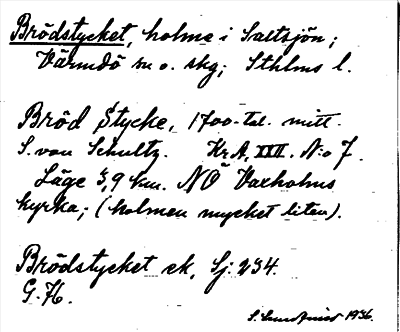 Brödstycket, holme i Saltsjön;
Värmdö sn o. skg; Sthlms l.
Bröd Stycke, 1700-tal. mitt.
S. von Schultz. Kr.A. XXII. N:o 7.
Läge 3,9 km. NO Vaxholms
kyrka; (holmen mycket liten).
Brödstycket ek, Sj: 234.
G. H.
1936.